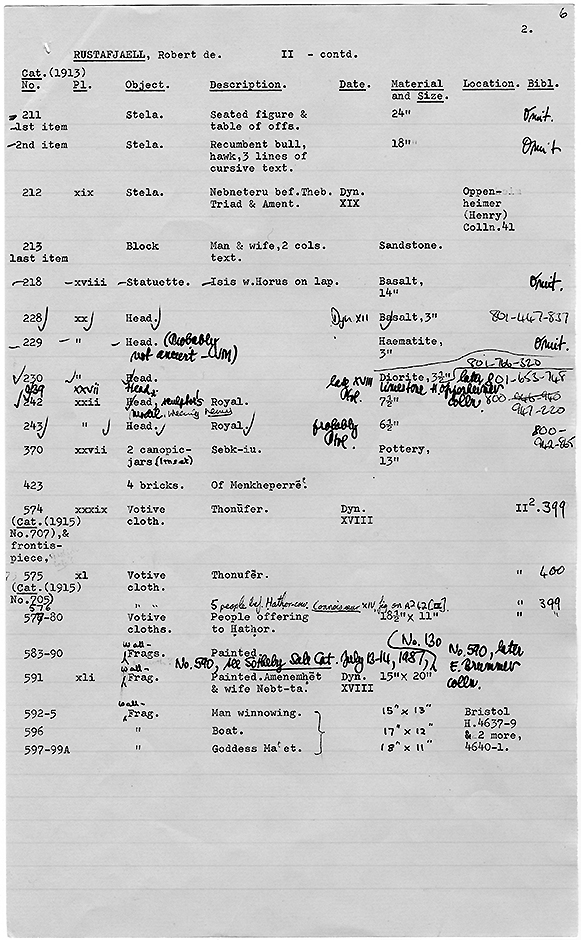 6
2.
RUSTAFJAELL, Robert de. II - contd.
Cat.(1913)
No. Pl. Object. Description. Date. Material and Size. Location. Bibl.
211 Stela. Seated figure & 24" Omit.
1st item table of offs.
2nd item Stela. Recumbent bull, 18" Omit
hawk,3 lines of
cursive text.
212 xix Stela. Nebneteru bef.Theb. Dyn. Oppen-
Triad & Ament. XIX heimer
(Henry)
Colln.41
213 Block Man & wife,2 cols. Sandstone.
last item text.
218 xviii Statuette. Isis w.Horus on lap. Basalt, Omit.
14"
228 xx Head. Dyn XII Basalt,3" 801-447-837
229 " Head. (Probably Haematite, Omit.
not ancient - JM) 3"
801-706-320
230 " Head. late XVIII Diorite,3½" 801-653-748
239 xxvii Head. limestone H. Oppenheimer
242 xxii Head, sculptor's Royal. Ptol. 7½" colln. 800-
model. wearing nemes 947-220
243 " Head. Royal. probably 6½" 800-
Ptol.
370 xxvii 2 canopic- Sebk-iu. Pottery,
jars 13"
423 4 bricks. Of Menkheperrē.
574 xxxix Votive Thonūfer. Dyn. II².399
(Cat.(1915) cloth. XVIII
No.707),&
frontis-
piece,
575 xl Votive Thonufēr. " 400
(Cat.(1915) cloth.
No.705)
576 " " 5 people bef. Hathor-cow, Connoisseur XIV, fig. on " 399
-80 Votive People offering 18½" x 11" " "
cloths. to Hathor.
583-90 wall-Frags. Painted. (No. 130 No.590, later
No.590, see Sotheby Sale Cat. July 13-14, 1987, E. Brummer
591 xli wall-Frag. Painted.Amenemhēt Dyn. 15"x 20" colln.
& wife Nebt-ta. XVIII
592-5 wall-Frag. Man winnowing. 15" x 13" Bristol
596 " Boat. 17" x 12" H.4637-9
& 2 more,
597-99A " Goddess Ma'et. 18" x 11" 4640-1.